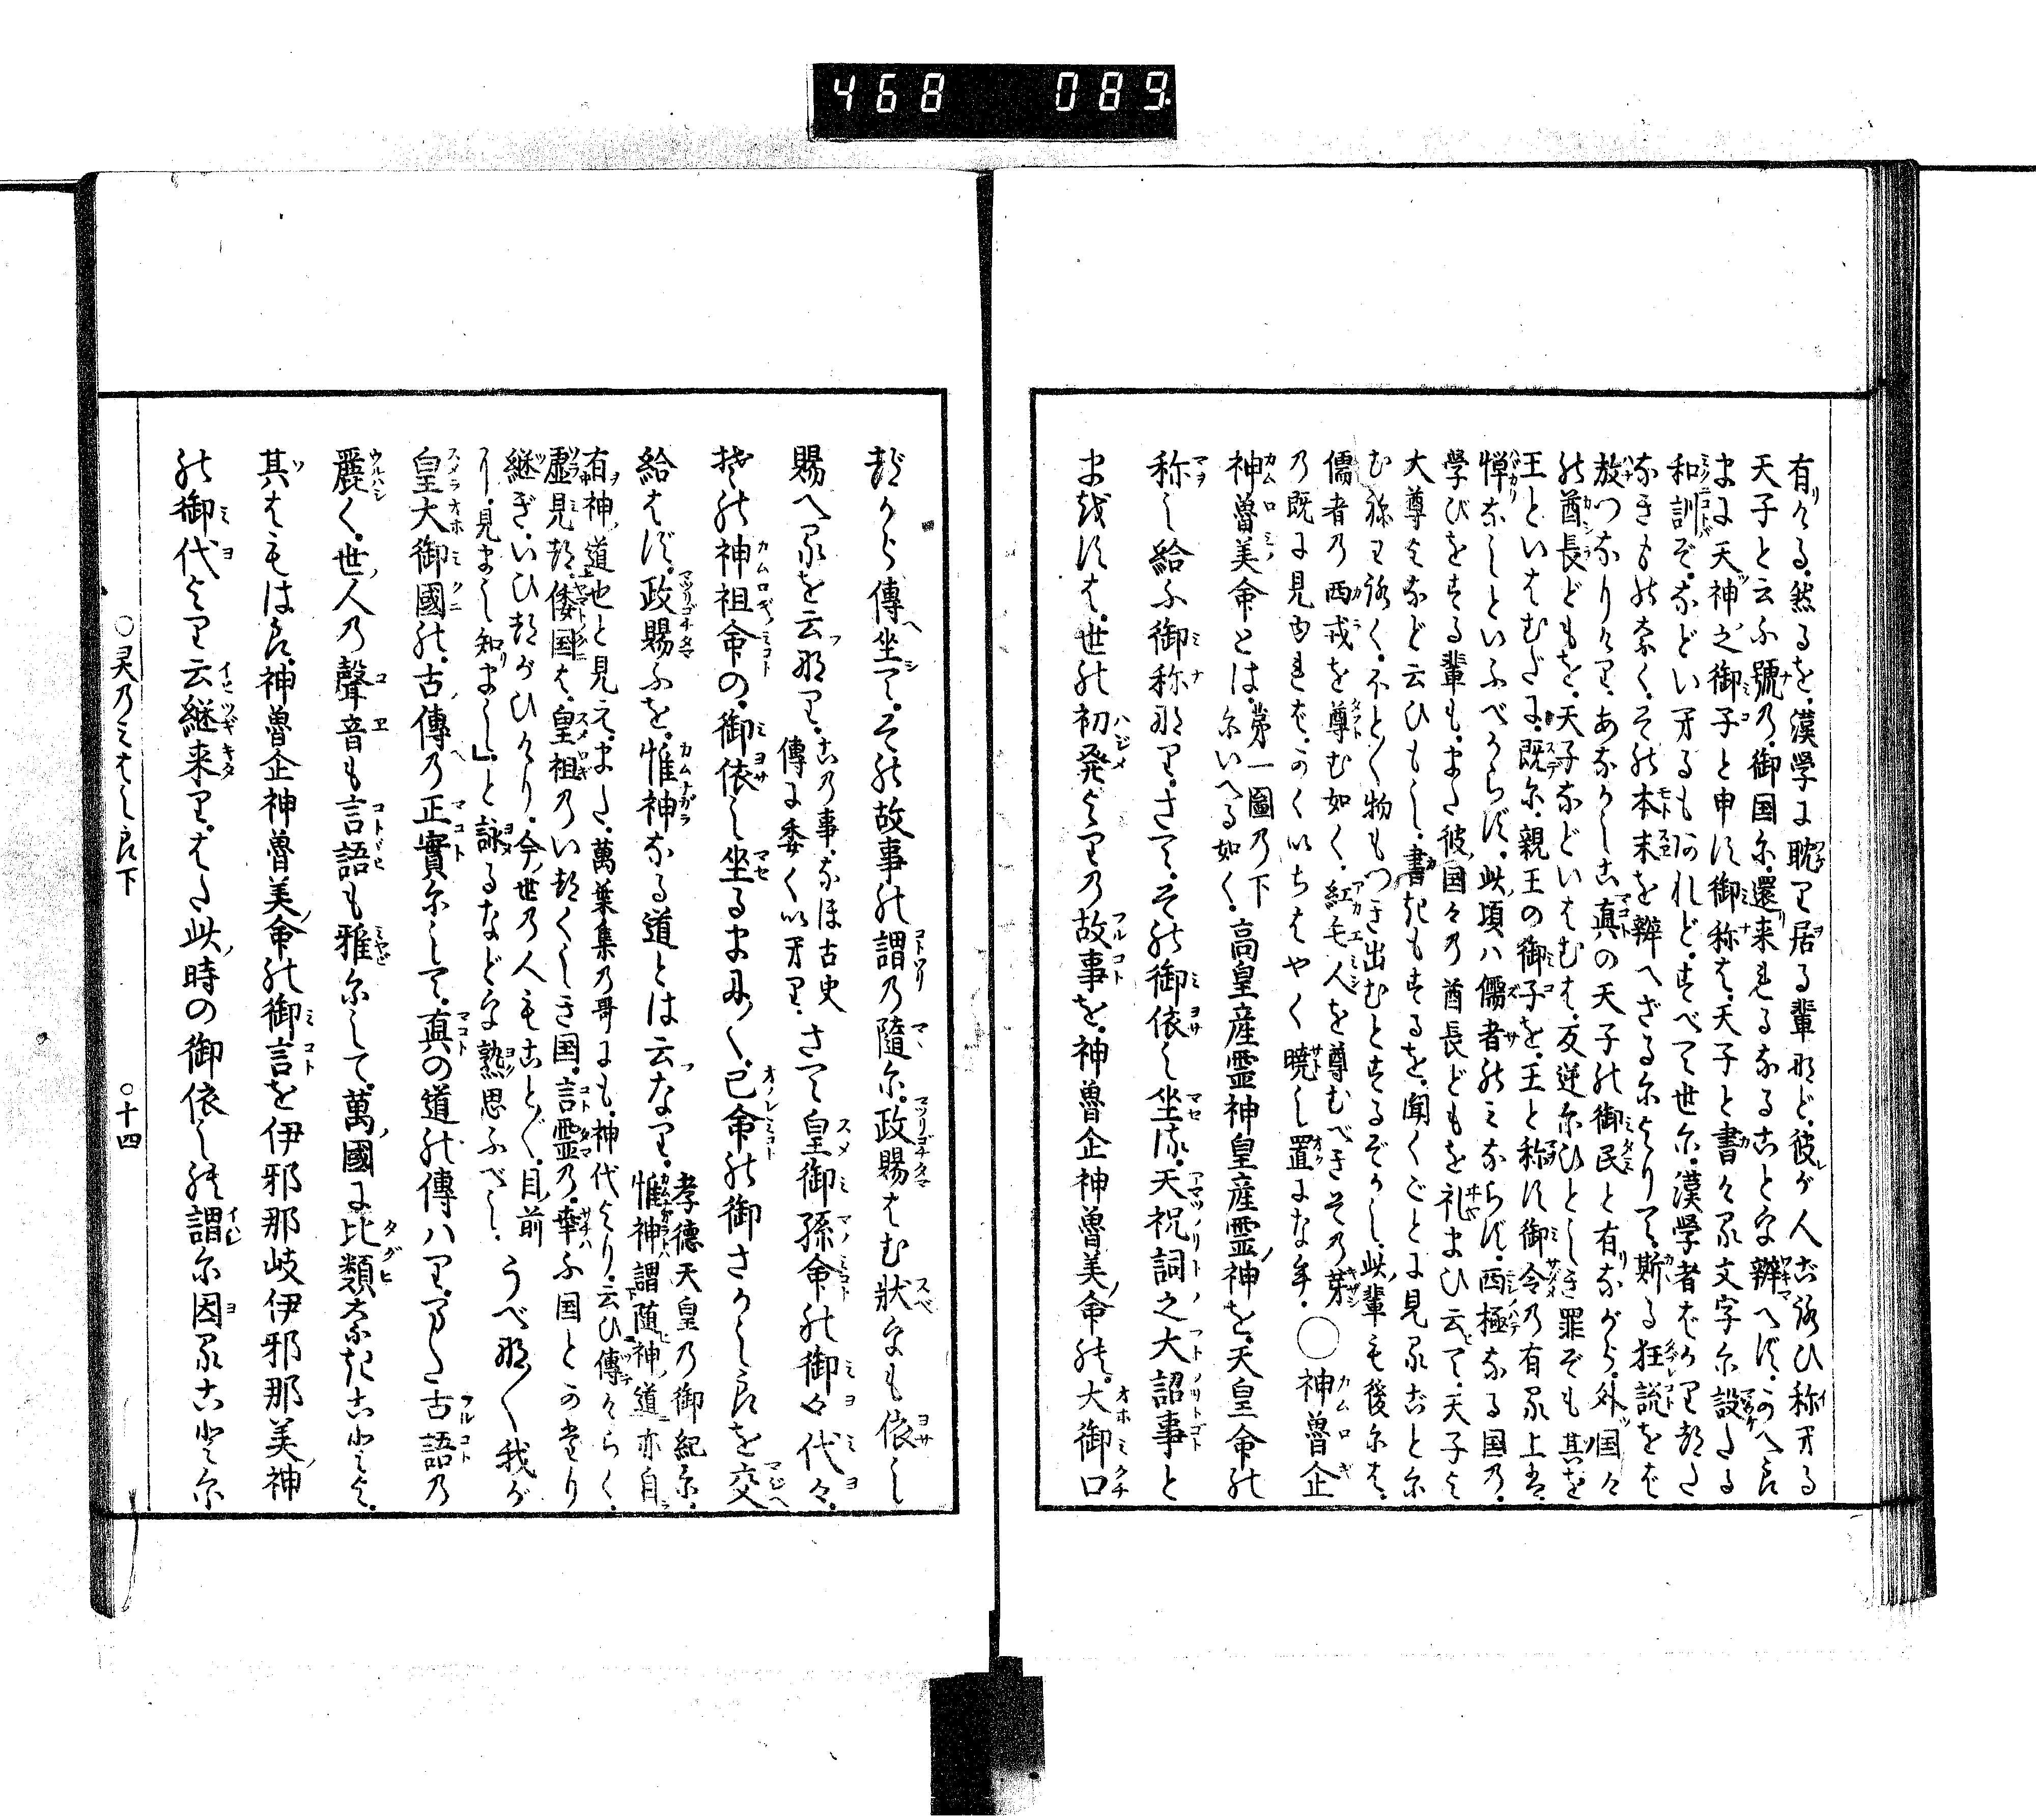 468 089
有りける。然るを。漢学に耽り居る輩など。彼が人
天子と云ふ號の。御国に。還来れるなることを辨へず。
まに天神之御子と申す御称を。天子と書ける文字に設たる
和訓ぞ。などいふるも
なきものなく。その本末を辨へざるによりて。斯る狂説をば
放つなりけり。あながしこ真の天子の御民と有ながら。外国々
の酋長どもを。天子などいはむは。反逆にひとしき罪ぞも其を
王といはむだに。既に。親王の御子を。王と称す御令の有る上は。
憚なしといふべからず。此頃ハ儒者のみならず。西極なる国の。
学びをする輩も。また彼国々の酋長どもを礼まひ云て。天子よ
大尊よなど云ひもし。書きもするを。聞くごとに見ることに
物もつき出むとするぞかし。此輩も後には。
儒者の西戎を尊む如く。紅毛人を尊むべきその芽
の既に見ゆれば。かくいちはやく曉し置になむ。○神魯企
神魯美命とは。第一圖の下にいへる如く。高皇産霊神皇産霊神を。天皇命の
称し給ふ御称なり。さて。その御依し坐る。天祝詞之大詔事と
まをすは。世の初発よりの故事を。神魯企神魯美命の。大御口
づから傳坐て。その故事の謂の隨に。政賜はむ状をも依し
賜へるを云なり。この事。なほ古史傳に委くいへり。さて皇御孫命の御々代々。
その神祖命の。御依し坐るまに〳〵。己命の御さかしらを交
給はず。政賜ふを。惟神なる道とは云なり。孝德天皇の御紀に。惟神謂隨神道亦自
有神道也と見え。また。萬葉集の哥にも。神代より。云ひ傳けらく。
虚見つ倭国は。皇祖のいつくしき国。言霊の。幸ふ国とかたり
継ぎ。いひつがひけり。今世の人もこと〴〵。目前
り。見まし知まし」と詠るなどを熟思ふべし。うべな〳〵我が
皇大御國の。古傳の正實にして。真の道の傳ハり。また古語の
麗く。世人の聲音も言語も雅にして。萬國に比類なきことよ。
其はもはら。神魯企神魯美命の御言を伊邪那岐伊邪那美神
の御代より云継来り。はた此時の御依しの謂に因ることに
○灵乃みはしら下 ○十四